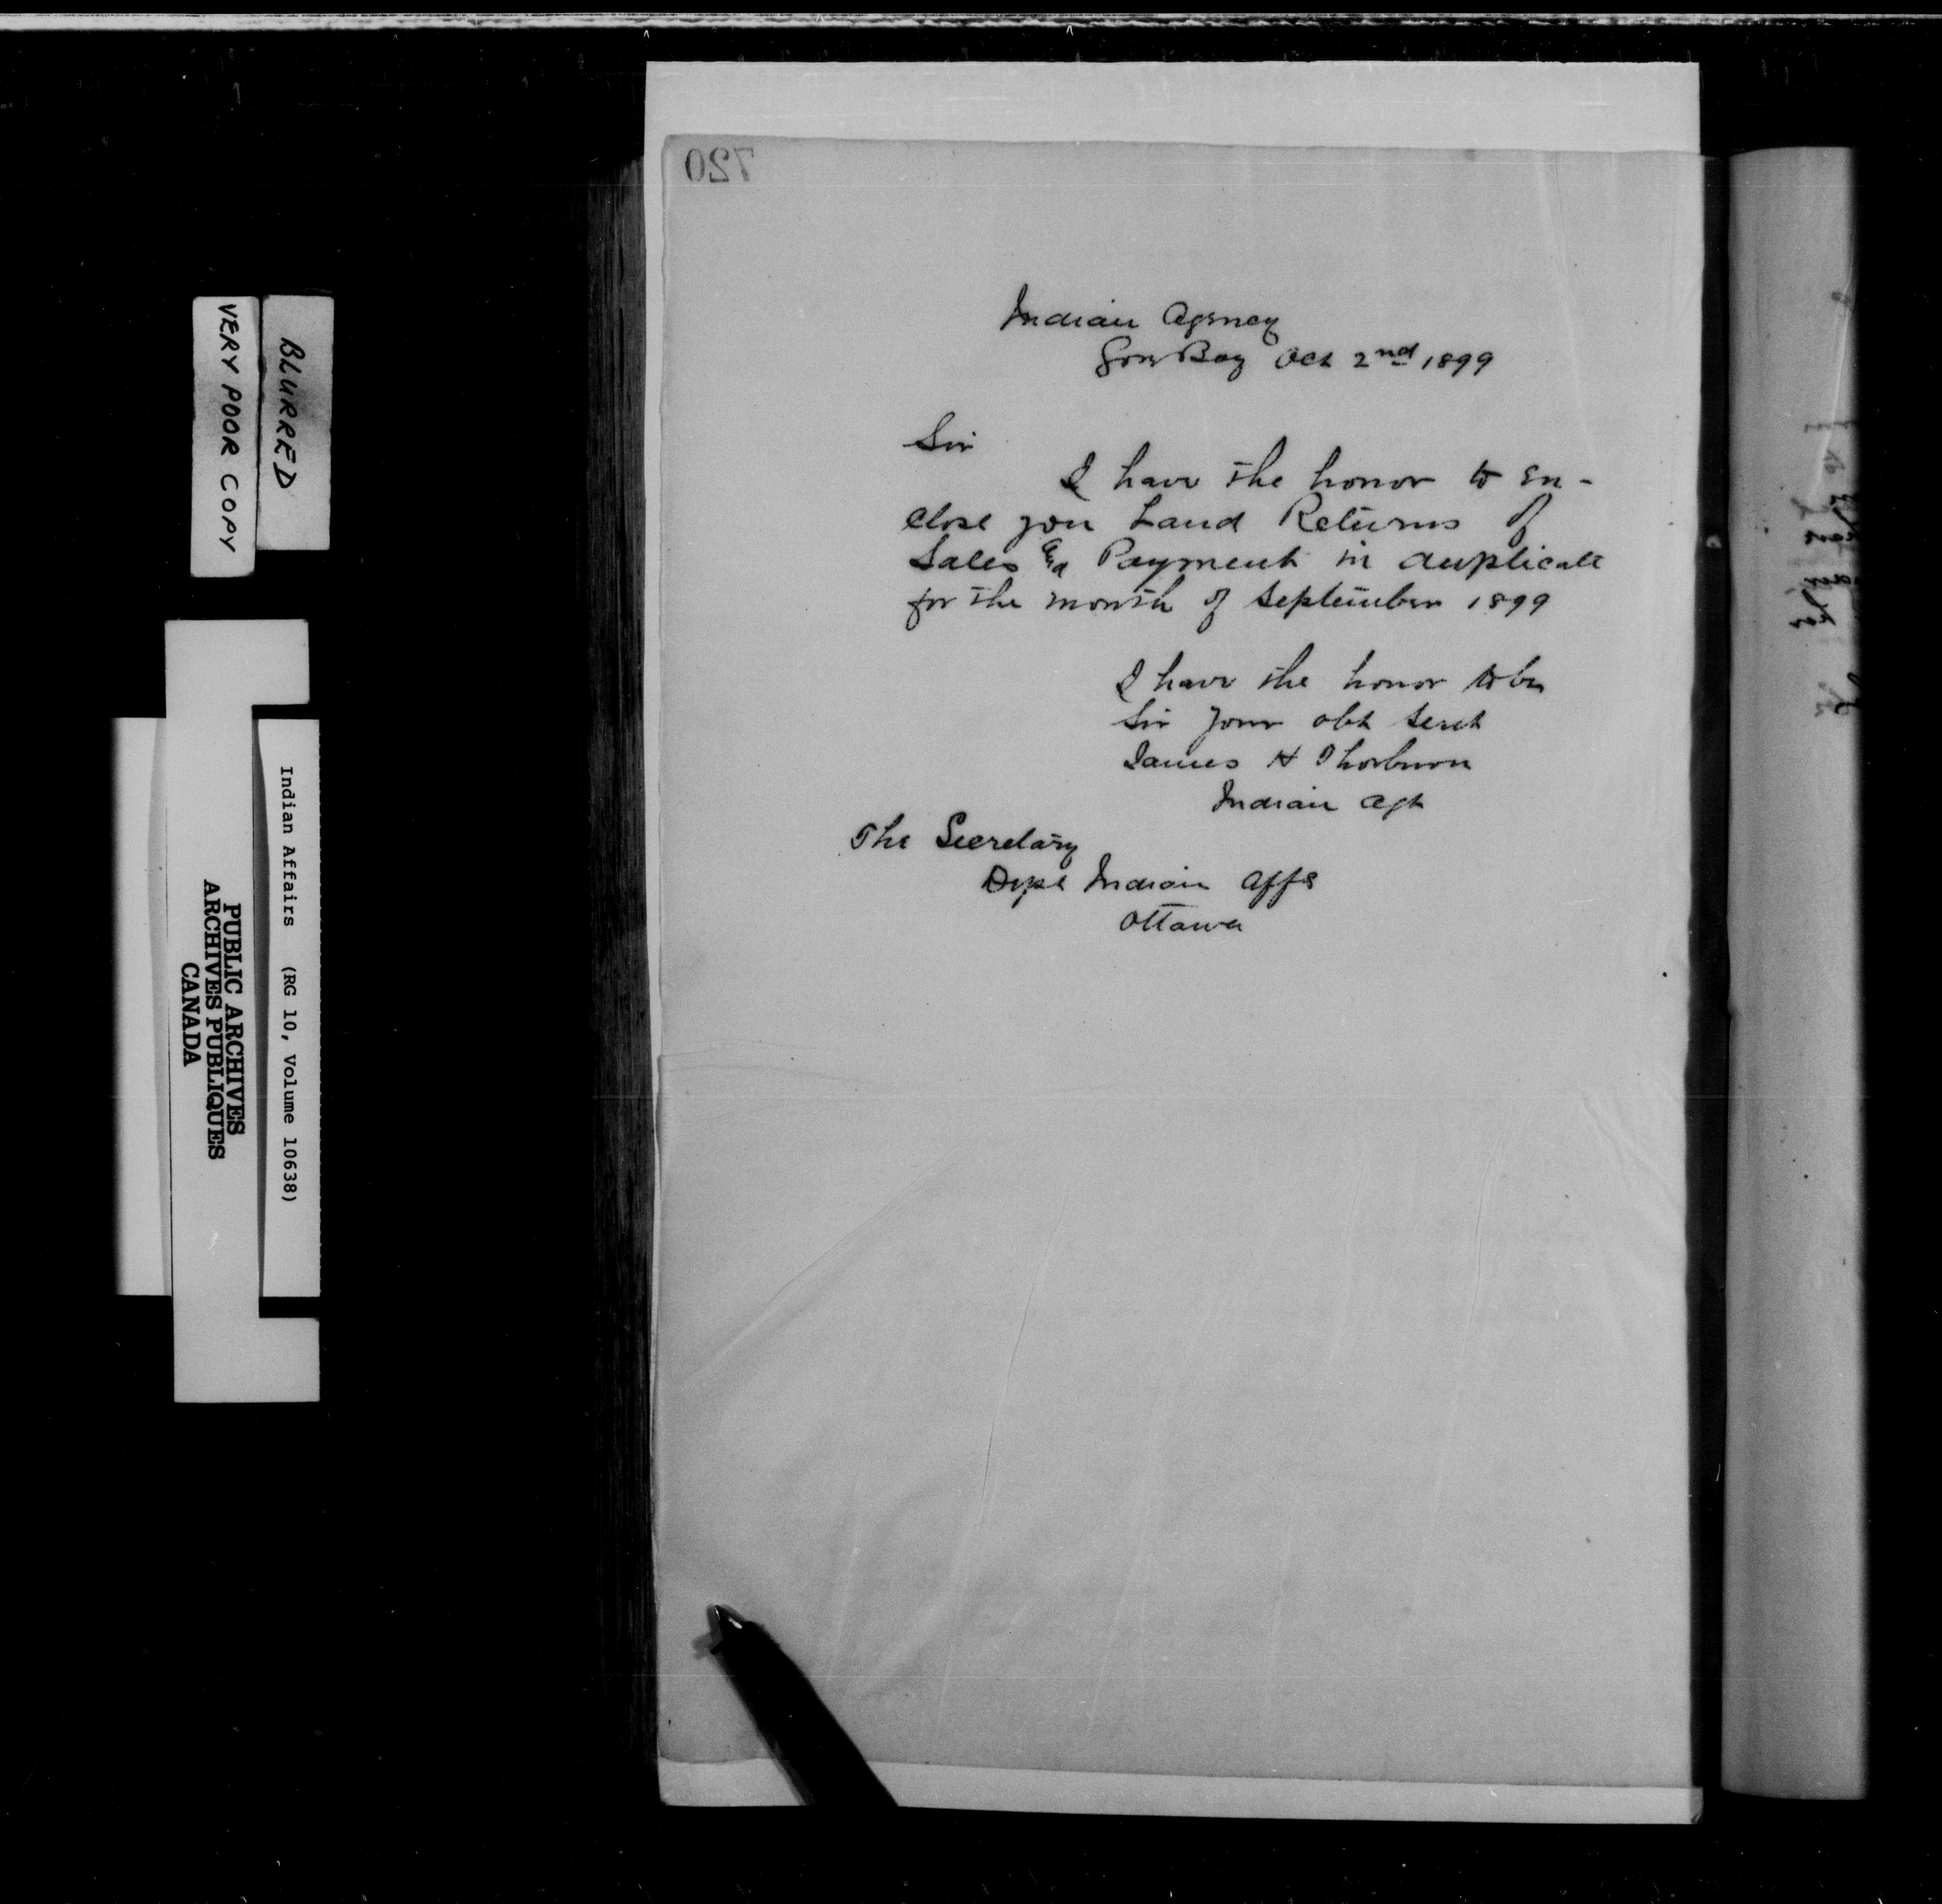 720
Indian Agency
Gore Bay Oct 2nd 1899
Sir
I have the honor to En-
close you Land Returns of
Sales & Payment in duplicate
for the month of September 1899
I have the honor to be
Sir your obt Servt
James H Thorburn
Indian Agt
The Secretary
Dept Indian Affs
Ottawa
BLURRED
VERY POOR COPY
Indian Affairs (RG 10, Volume 10638)
PUBLIC ARCHIVES
ARCHIVES PUBLIQUES
CANADA